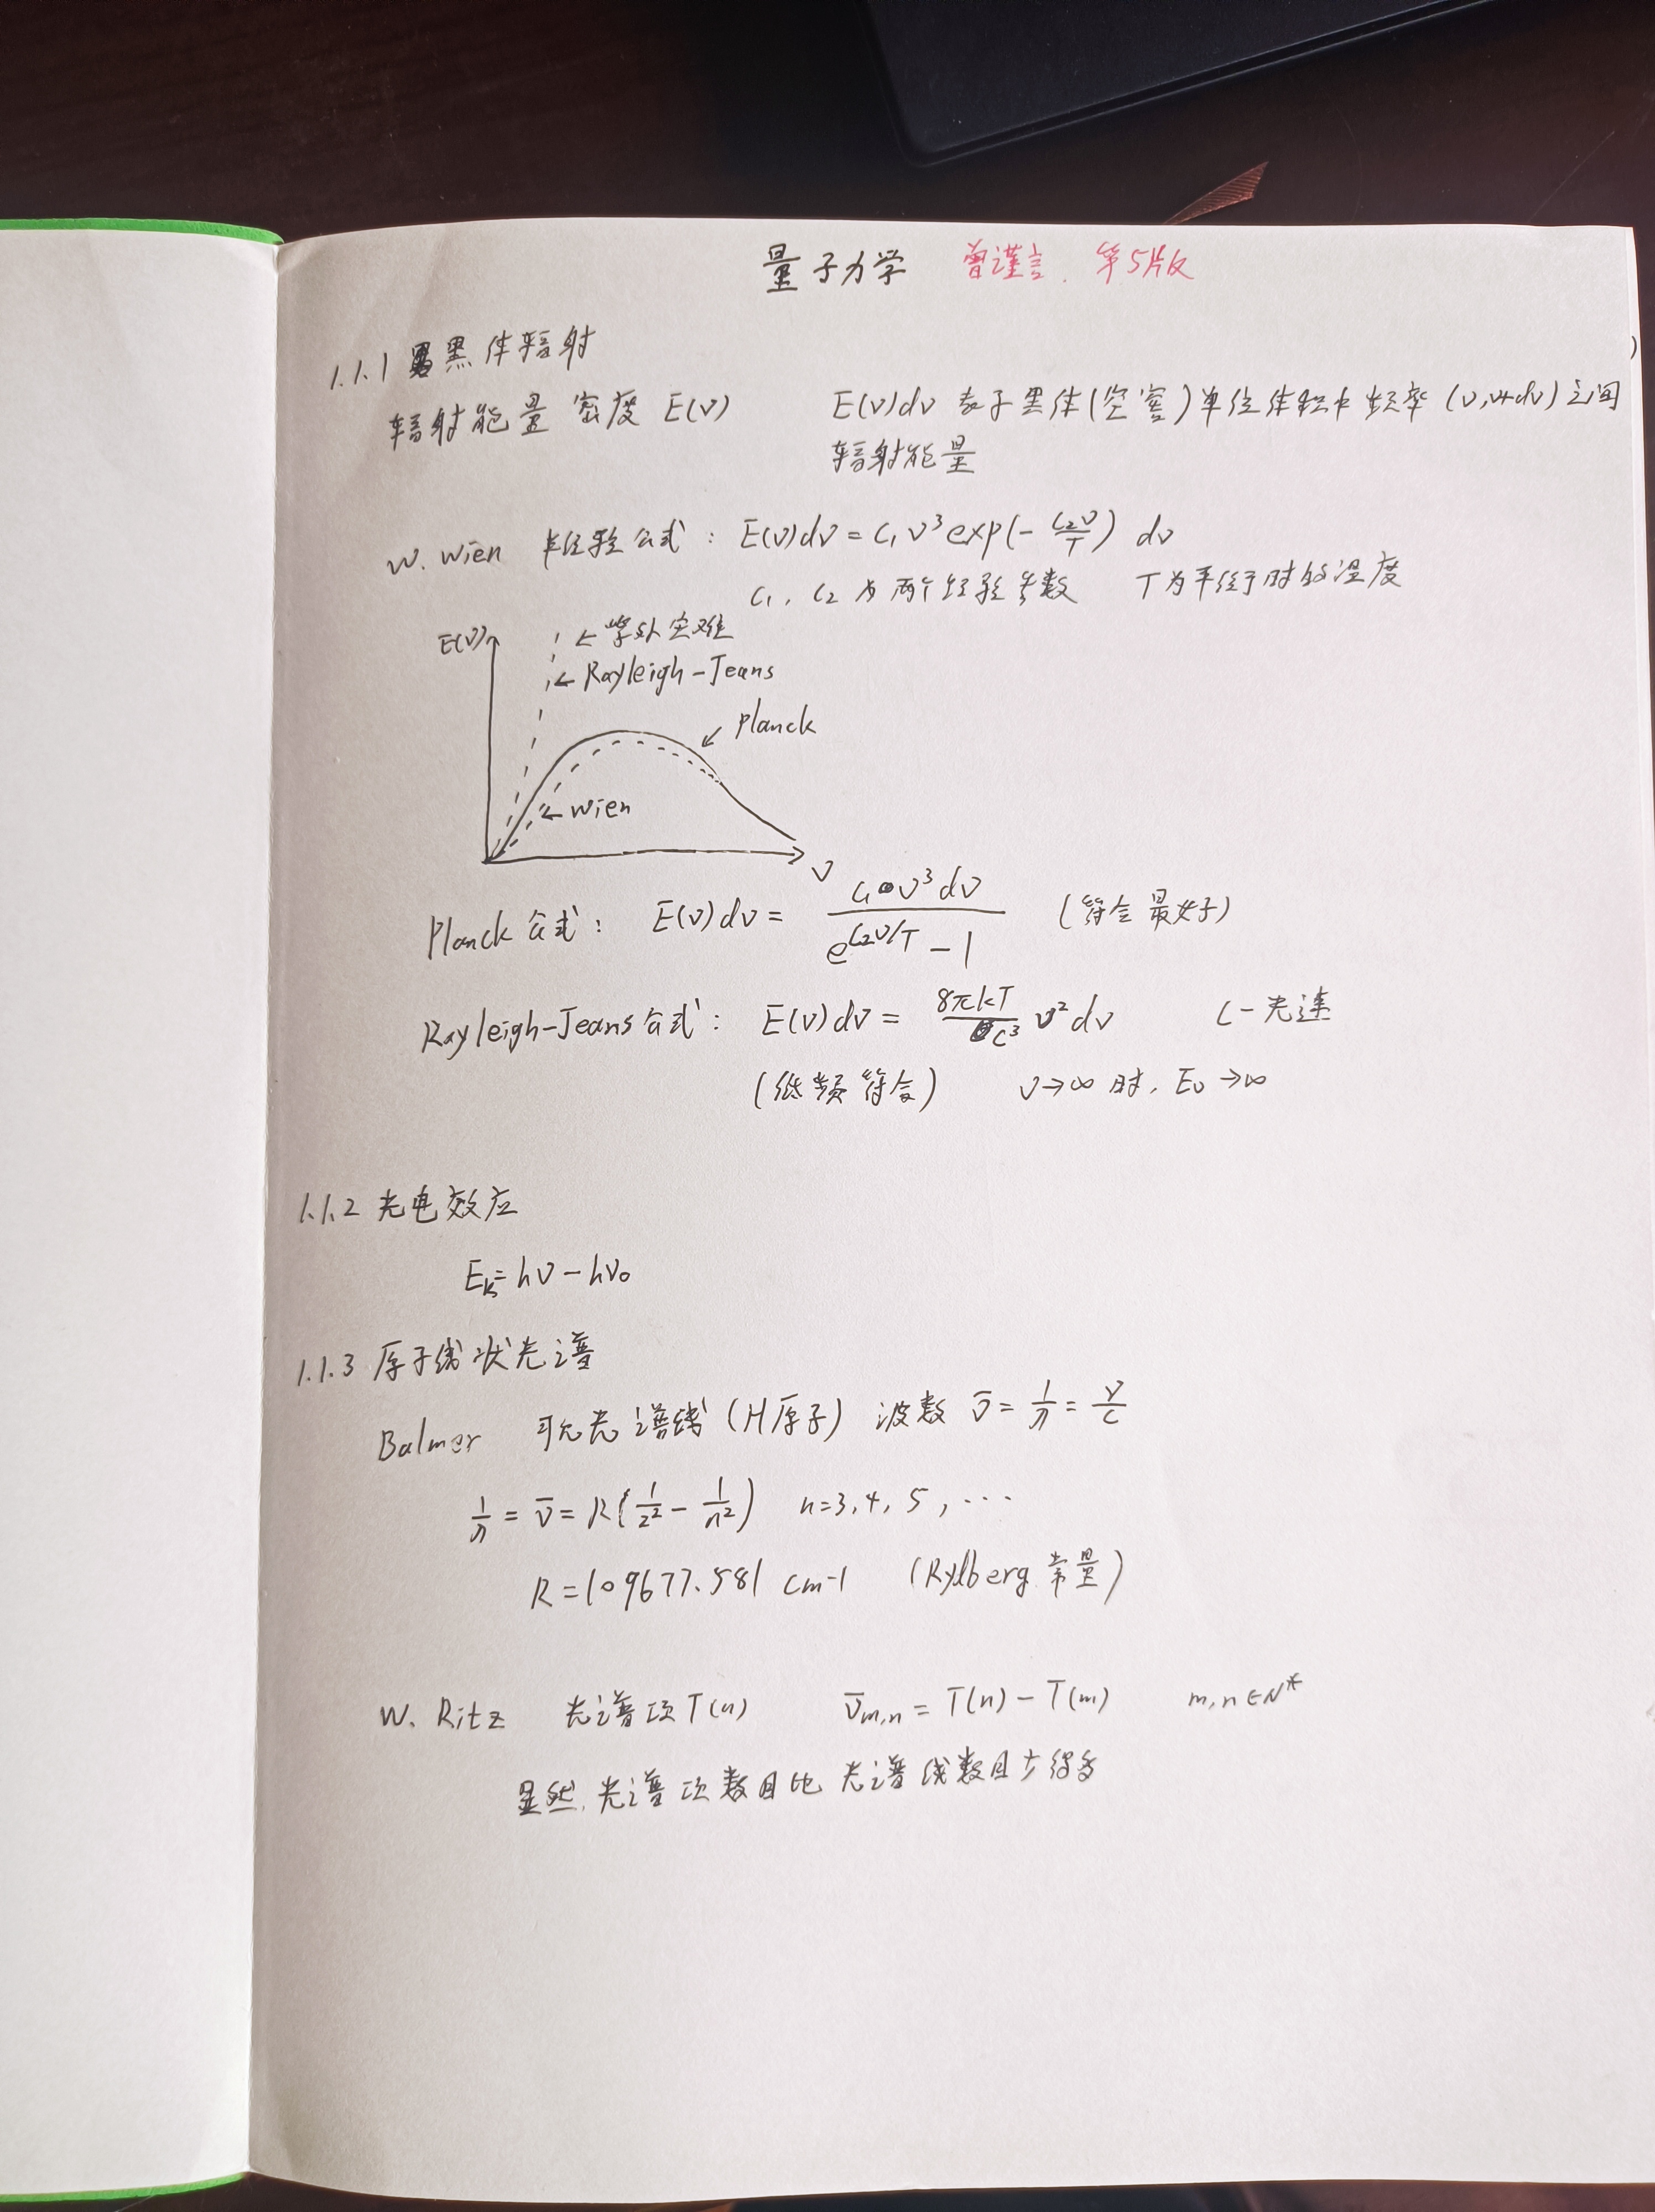 量子力学 曾谨言. 第5版
1.1.1 黑体辐射
辐射能量密度 E(ν) E(ν)dν 表示黑体(空窖)单位体积中频率 (ν,ν+dν)之间
辐射能量
W. Wien 经验公式: E(ν)dν = C₁ν³exp(-C₂ν/T) dν
C₁, C₂ 为两个经验参数 T为平衡时的温度
E(ν)
← 紫外灾难
← Rayleigh-Jeans
Planck
← Wien
ν
Planck 公式: E(ν)dν = C₁ν³dν / (e^(C₂ν/T) - 1) (符合最好)
Rayleigh-Jeans公式: E(ν)dν = 8πkT/C³ ν²dν C-光速
(低频符合) ν→∞ 时, Eν→∞
1.1.2 光电效应
Ek = hν - hν₀
1.1.3 原子线状光谱
Balmer 可见光谱线 (H原子) 波数 ν̄ = 1/λ = ν/c
1/λ = ν̄ = R(1/2² - 1/n²) n=3,4,5,···
R=109677.581 cm-1 (Rydberg 常量)
W. Ritz 光谱项T(n) ν̄m,n = T(n) - T(m) m,n∈N*
显然,光谱项数目比光谱线数目少得多